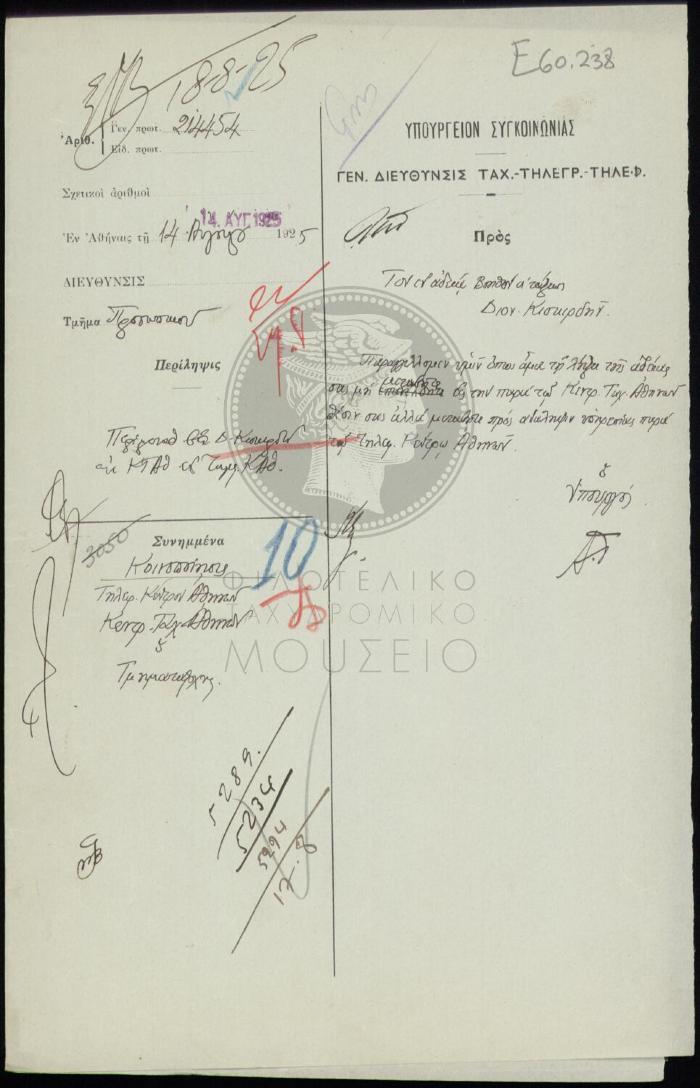 Ε60.238
18-8-25
Ἀριθ.
Γεν. πρωτ. 214454
Εἰδ. πρωτ.
Σχετικοὶ ἀριθμοὶ
14. ΑΥΓ 1925
Ἐν Ἀθήναις τῇ 14 Αὐγούσ 1925
ΔΙΕΥΘΥΝΣΙΣ
Τμῆμα Προσωπικοῦ
Περίληψις
ΚΤΑθ
Συνημμένα
3050
10
Κοινοποίησις
Τηλεφ. Κέντρον Ἀθηνῶν
Κεντρ. Ταχ. Ἀθηνῶν
ὁ
Τμηματάρχης
5289.
5234
5294
17.8
ΥΠΟΥΡΓΕΙΟΝ ΣΥΓΚΟΙΝΩΝΙΑΣ
ΓΕΝ. ΔΙΕΥΘΥΝΣΙΣ ΤΑΧ.-ΤΗΛΕΓΡ.-ΤΗΛΕΦ.
Πρὸς
Τὸν ἐν ἀδείᾳ Βοηθὸν α τάξεως
Διον. Κισκιρδῆν.
Παραγγέλλομεν ὑμῖν ὅπως ἅμα τῇ λήξει τῆς ἀδείας
σας μὴ μεταβῆτε εἰς τὴν παρὰ τῷ Κεντρ. Ταχ. Ἀθηνῶν
θέσιν σας ἀλλὰ μεταβῆτε πρὸς ἀνάληψιν ὑπηρεσίας παρὰ
τῷ Τηλεφ. Κέντρῳ Ἀθηνῶν.
ὁ
Ὑπουργός
ΦΙΛΟΤΕΛΙΚΟ
ΤΑΧΥΔΡΟΜΙΚΟ
ΜΟΥΣΕΙΟ